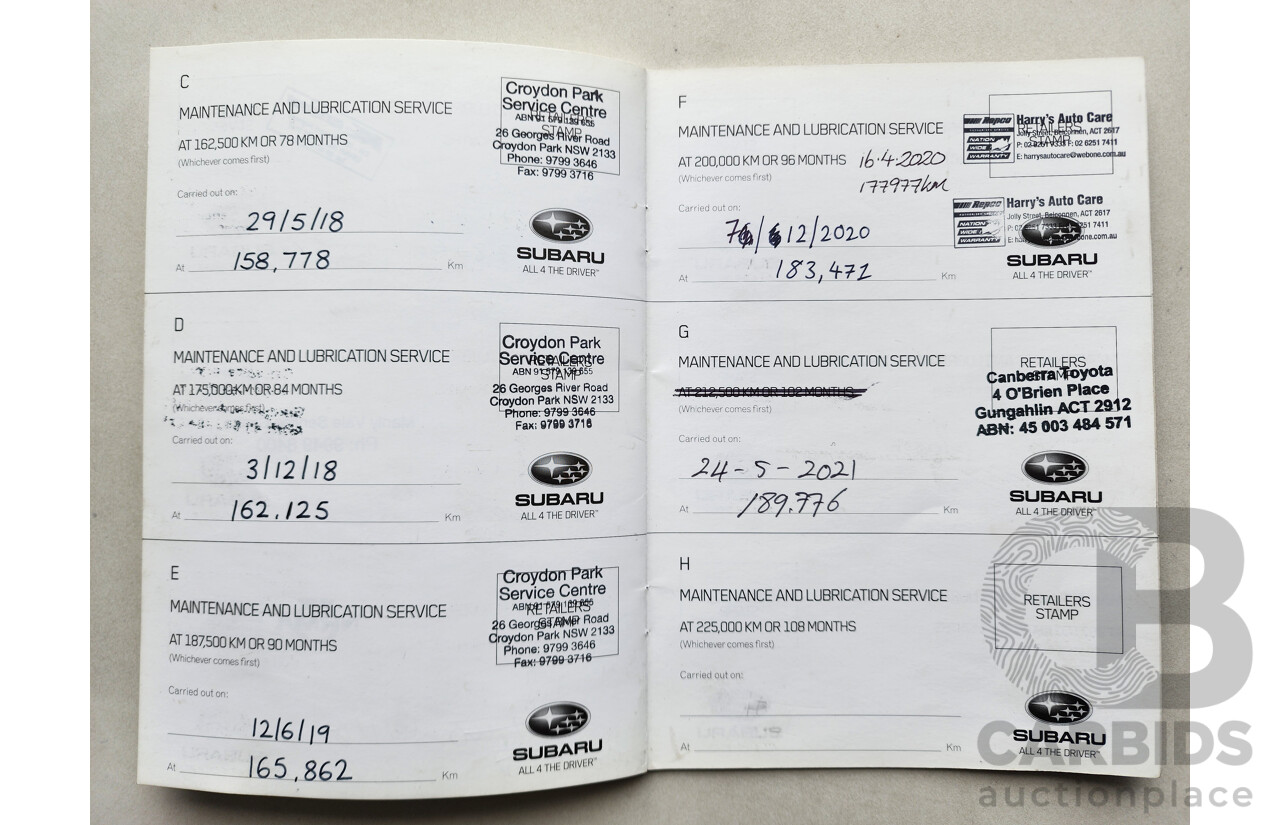 C
MAINTENANCE AND LUBRICATION SERVICE
AT 162,500 KM OR 78 MONTHS
(Whichever comes first)
Carried out on:
29/5/18
At 158,778 Km
Croydon Park
Service Centre
26 Georges River Road
Croydon Park NSW 2133
Phone: 9799 3646
Fax: 9799 3716
SUBARU
ALL 4 THE DRIVER™
D
MAINTENANCE AND LUBRICATION SERVICE
AT 175,000 KM OR 84 MONTHS
(Whichever comes first)
Carried out on:
3/12/18
At 162.125 Km
Croydon Park
Service Centre
26 Georges River Road
Croydon Park NSW 2133
Phone: 9799 3646
Fax: 9799 3716
SUBARU
ALL 4 THE DRIVER™
E
MAINTENANCE AND LUBRICATION SERVICE
AT 187,500 KM OR 90 MONTHS
(Whichever comes first)
Carried out on:
12/6/19
At 165,862 Km
Croydon Park
Service Centre
26 Georges River Road
Croydon Park NSW 2133
Phone: 9799 3646
Fax: 9799 3716
SUBARU
ALL 4 THE DRIVER™
F
MAINTENANCE AND LUBRICATION SERVICE
AT 200,000 KM OR 96 MONTHS 16·4·2020
(Whichever comes first) 177977km
Carried out on:
12/2020
At 183,471 Km
Repco
NATION
WIDE
WARRANTY
Harry's Auto Care
Jolly Street, Belconnen, ACT 2617
E: harrysautocare@webone.com.au
Repco
NATION
WIDE
WARRANTY
Harry's Auto Care
Jolly Street, Belconnen, ACT 2617
SUBARU
ALL 4 THE DRIVER™
G
MAINTENANCE AND LUBRICATION SERVICE
AT 212,500 KM OR 102 MONTHS
(Whichever comes first)
Carried out on:
24-5-2021
At 189.776 Km
RETAILERS
STAMP
Canberra Toyota
4 O'Brien Place
Gungahlin ACT 2912
ABN: 45 003 484 571
SUBARU
ALL 4 THE DRIVER™
H
MAINTENANCE AND LUBRICATION SERVICE
AT 225,000 KM OR 108 MONTHS
(Whichever comes first)
Carried out on:
At Km
RETAILERS
STAMP
SUBARU
ALL 4 THE DRIVER™
CB
CARBIDS
auctionplace